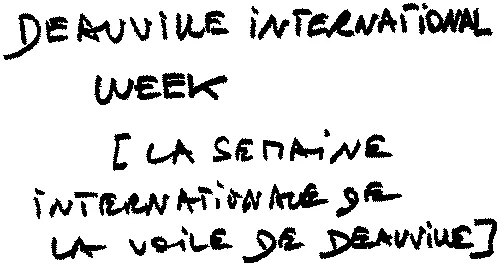 DEAUVILLE iNTERNATiONAL
WEEK
[LA SEMAiNE
iNTERNATiONALE DE
LA VOiLE DE DEAUViLLE]